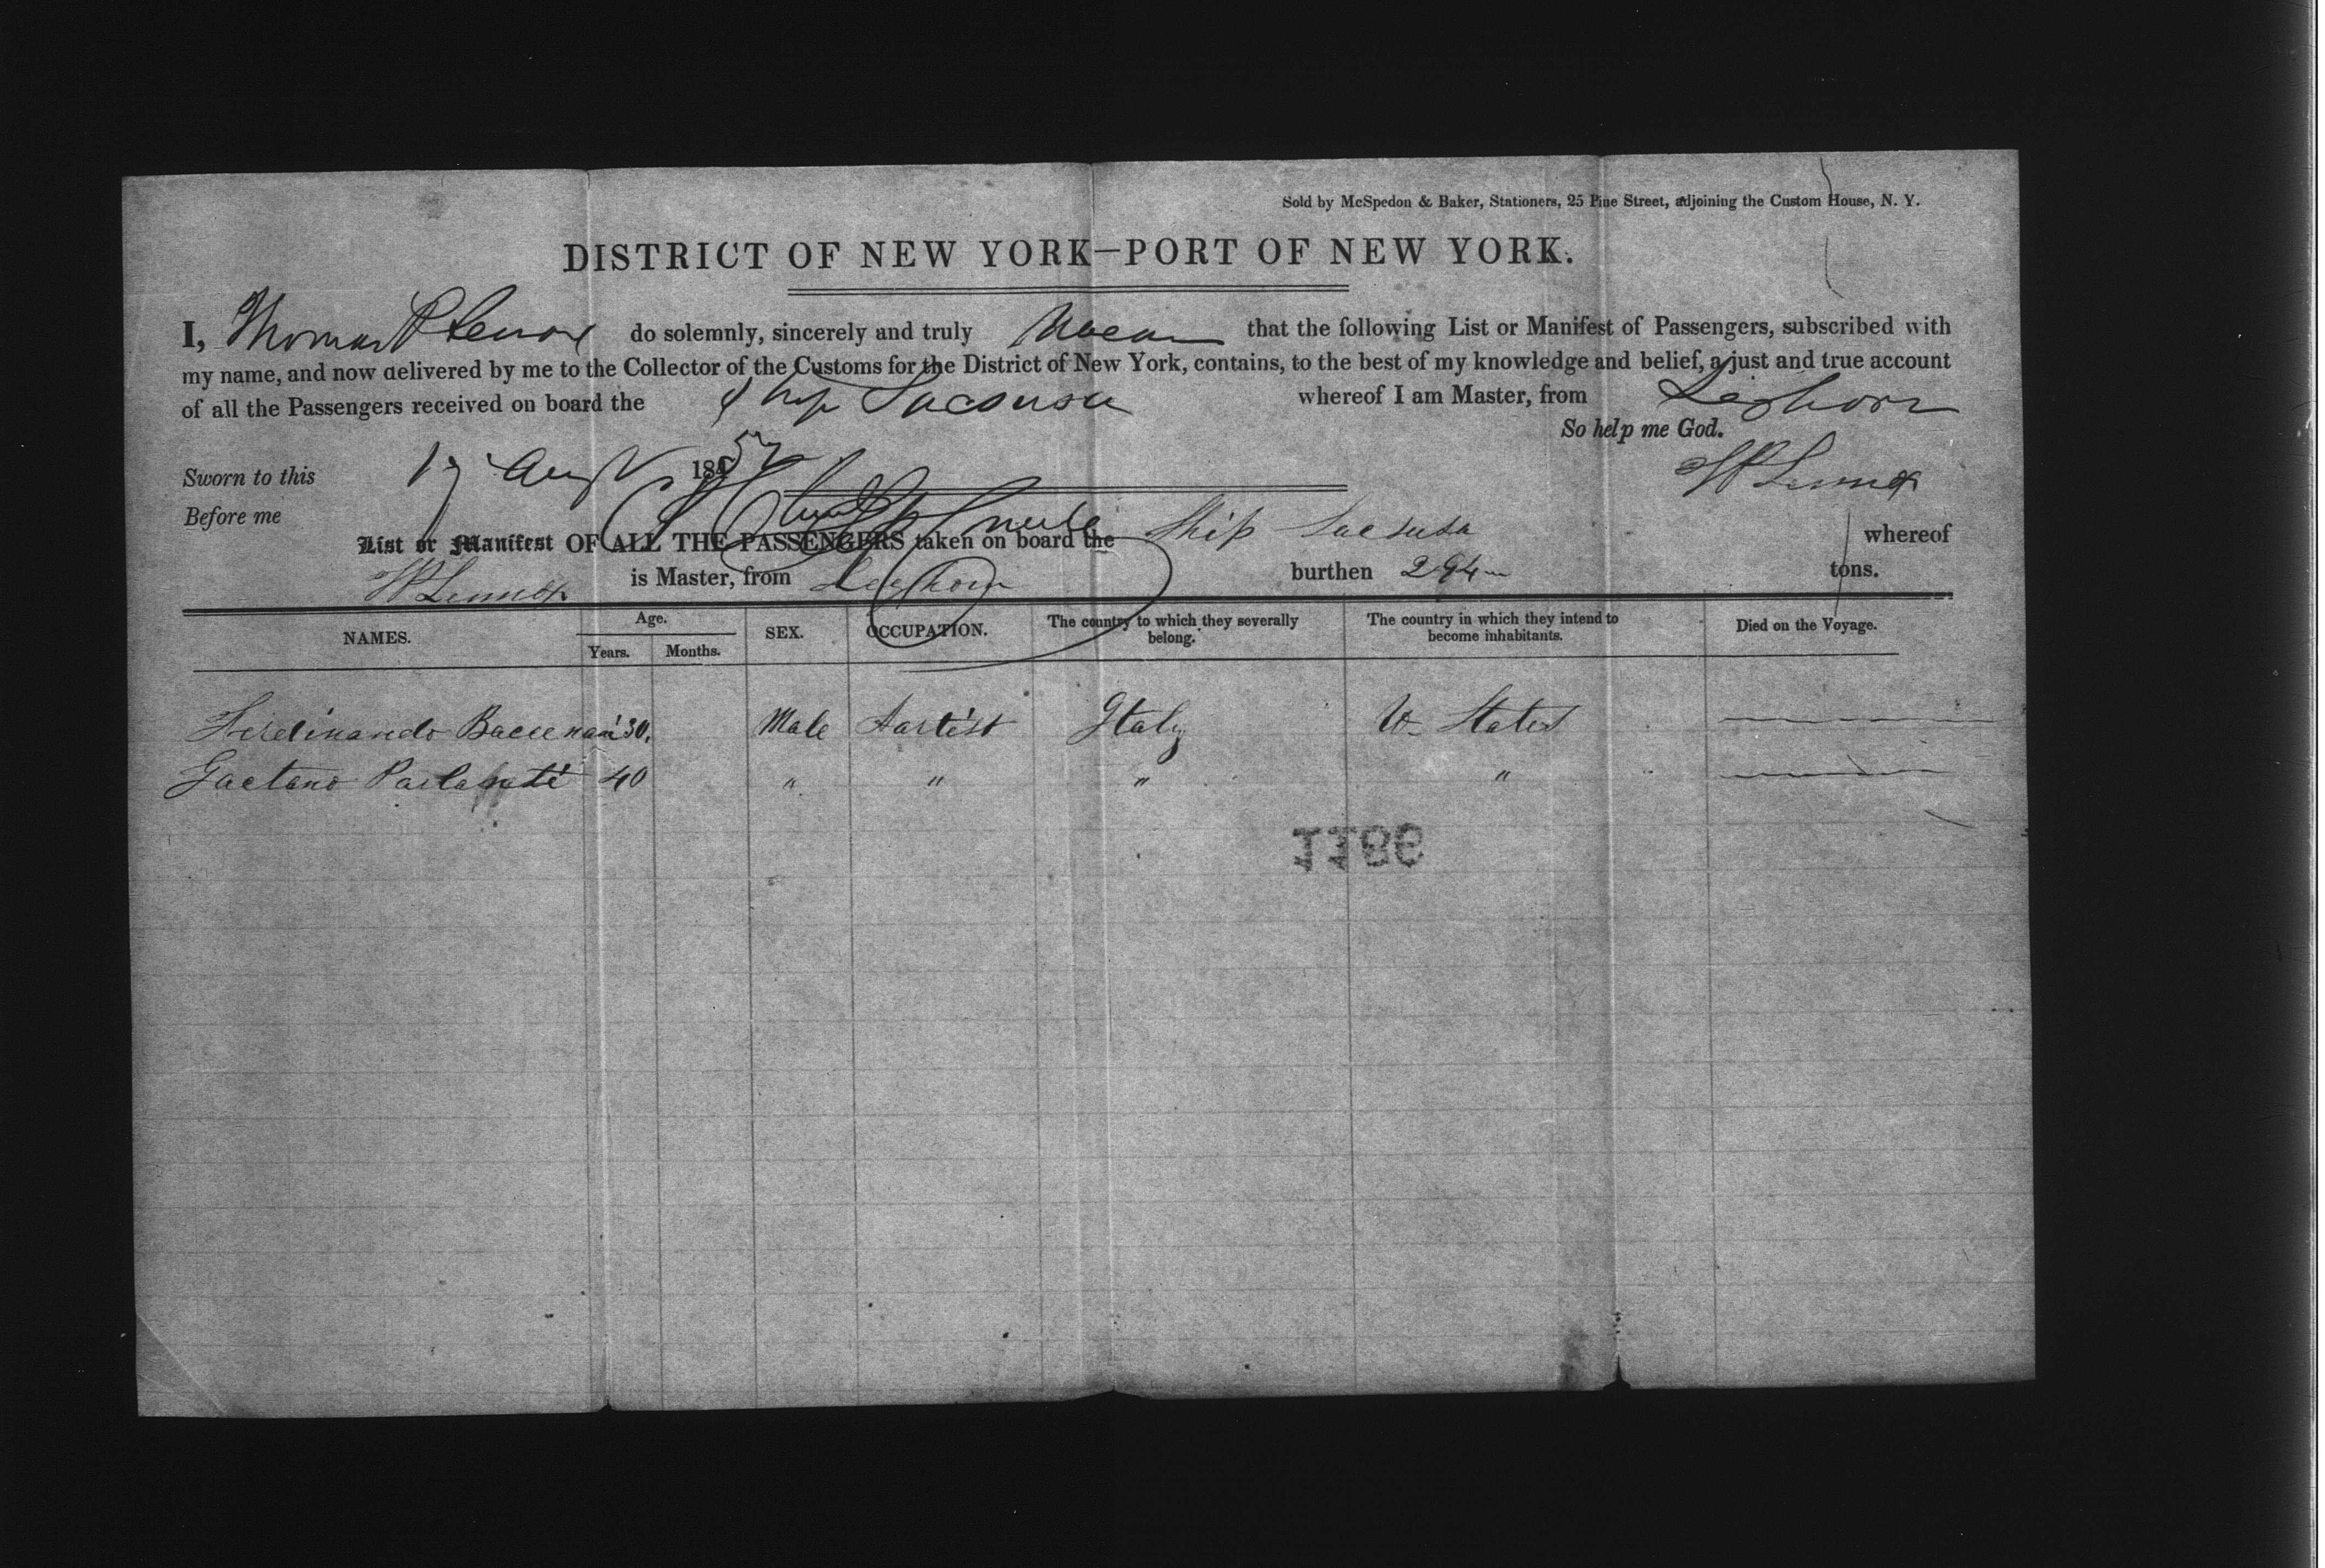 Sold by McSpedon & Baker, Stationers, 25 Pine Street, adjoining the Custom House, N. Y.
DISTRICT OF NEW YORK—PORT OF NEW YORK.
I, Thomas P Lenox do solemnly, sincerely and truly Swear that the following List or Manifest of Passengers, subscribed with
my name, and now delivered by me to the Collector of the Customs for the District of New York, contains, to the best of my knowledge and belief, a just and true account
of all the Passengers received on board the Ship whereof I am Master, from Leghorn
So help me God.
Sworn to this 17 Augt 1852
Before me
List or Manifest OF ALL THE PASSENGERS taken on board the Ship whereof
is Master, from Leghorn burthen 294 tons.
NAMES. Age. Years. Months. SEX. OCCUPATION. The country to which they severally belong. The country in which they intend to become inhabitants. Died on the Voyage.
Ferdinando 30. Male Aartist Italy U. States
Gaetano 40 " " " "
1186